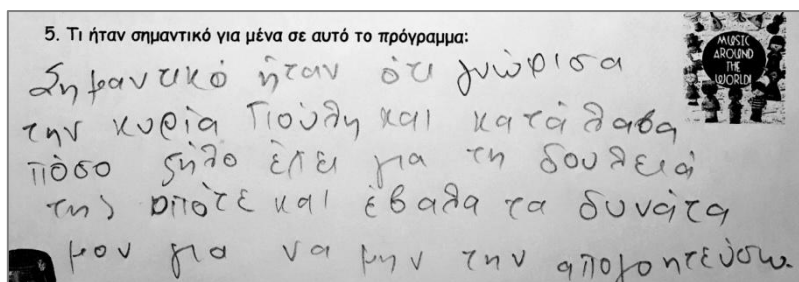 5. Τι ήταν σημαντικό για μένα σε αυτό το πρόγραμμα:
MUSIC
AROUND
THE
WORLD!
Σημαντικό ήταν ότι γνώρισα
την κυρία Γιούλη και κατάλαβα
πόσο ζήλο έχει για τη δουλειά
της οπότε και έβαλα τα δυνάτα
μου για να μην την απογοητεύσω.